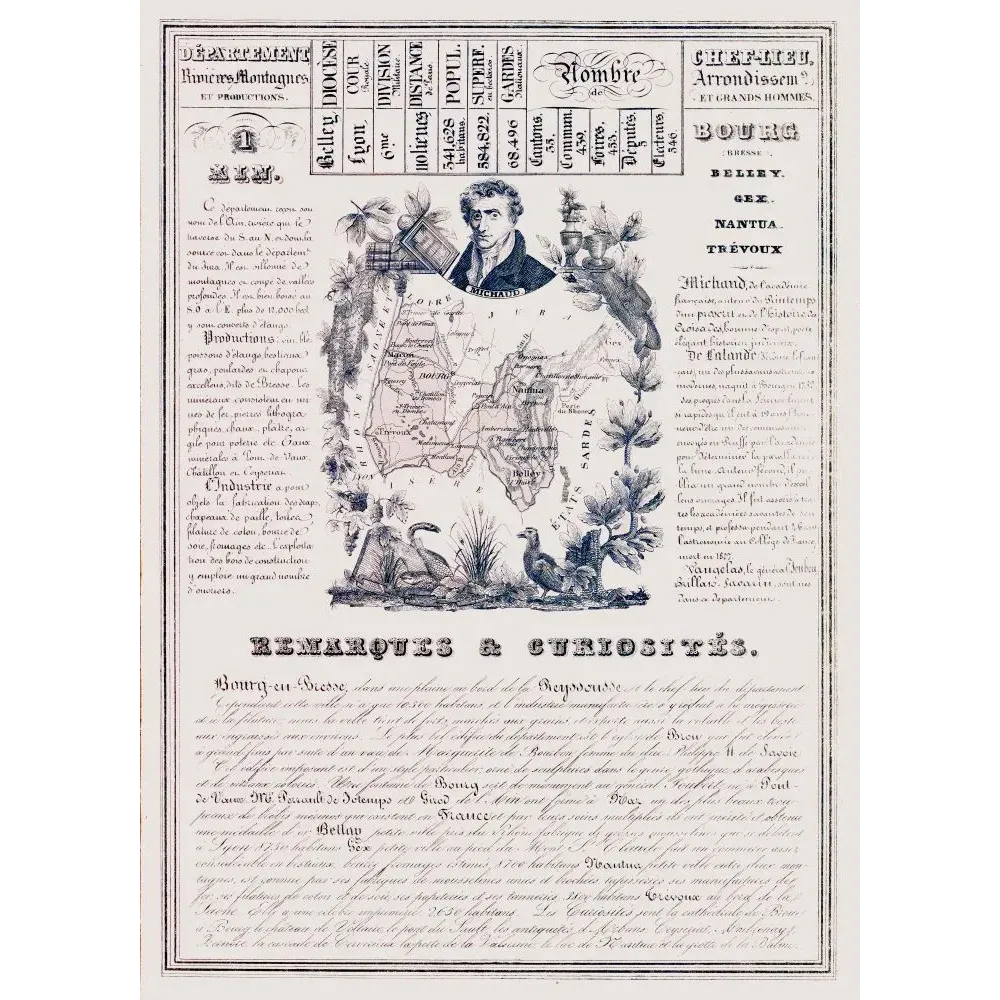 DÉPARTEMENT
Rivières Montagnes,
ET PRODUCTIONS.
DIOCÈSE
Belley
COUR Royale
Lyon
DIVISION Militaire.
6me
DISTANCE de Paris.
110 lieues
POPUL.
341,628 habitans.
SUPERF. en hectares.
584,822.
GARDES Nationaux.
68,496
Nombre
de
Cantons, 35.
Commun. 439.
Foires, 433.
Députés, 5
Électeurs, 546.
CHEF-LIEU,
Arrondissemt.
ET GRANDS HOMMES.
1
AIN.
Ce département reçoit son
nom de l'Ain, rivière qui le
traverse du S. au N. et dont la
source est dans le départemt
du Jura. Il est sillonné de
montagnes et coupé de vallées
profondes. Il est bien boisé au
S.O. à l'E. plus de 12,000 hect
y sont couverts d'étangs.
Productions: vin, blé
poissons d'étangs, bestiaux
gras, poulardes et chapons
excellens, dits de Bresse. Les
minéraux consistent en mi
nes de fer, pierres lithogra
phiques, chaux, plâtre, ar
gile pour poterie etc. Eaux
minérales à Pont-de-Vaux,
Châtillon et
L'Industrie a pour
objets la fabrication des draps,
chapeaux de paille, toiles,
filature de coton, bourre de
soie, fromages etc. L'exploita
tion des bois de construction
y emploie un grand nombre
d'ouvriers.
BOURG
(BRESSE).
BELLEY.
GEX.
NANTUA.
TRÉVOUX
Michaud, de l'académie
française, auteur du Printemps
d'un proscrit et de l'histoire des
Croisades, homme d'esprit, poète
élégant, historien judicieux.
De Lalande
modernes, naquit à Bourg en 1732
ses progrès dans la Science furent
si rapides qu'il eut à 19 ans l'hon
neur d'être un des commissaires
envoyés en Prusse par l'académie
pour déterminer la parallaxe de
la lune. Auteur fécond, il pu
blia un grand nombre d'excel
lens ouvrages. Il fut associé à tou
tes les académies savantes de son
temps, et professa pendant 46 ans
l'astronomie au Collège de France,
mort en 1807.
Vaugelas, le général Joubert,
Brillat-Savarin, sont nés
dans ce département.
MICHAUD
SAÔNE ET LOIRE
JURA
RHÔNE
ISÈRE
ÉTATS SARDES
LYON
Mâcon
BOURG
Trévoux
Nantua
Belley
Gex
REMARQUES & CURIOSITÉS.
Bourg-en-Bresse, dans une plaine au bord de la Reyssousse, est le chef-lieu du département
Cependant cette ville n'a que habitans et l'industrie manufacturière s'y réduit à la mégisserie
et à la filature; mais la ville tient de forts marchés aux grains et exporte aussi la volaille et les besti
aux engraissés aux environs. Le plus bel édifice du département est l'église de Brou qui fut élevée
à grands frais par suite d'un vœu de Marguerite de Bourbon femme du duc Philippe II de Savoie
Cet édifice imposant est d'un style particulier, orné de sculptures dans le genre gothique, d'arabesques
et de vitraux coloriés. Une fontaine de Bourg sert de monument au général Joubert, né à Pont-
de-Vaux. MM. Perrault de Jotemps et Girod de l'Ain ont formé à Naz un des plus beaux trou
peaux de bêtes mérinos qui existent en France et par leurs soins multipliés ils ont mérité et obtenu
une médaille d'or. Belley petite ville près du Rhône fabrique de qui se débitent
à Lyon habitans. Gex petite ville au pied du Mont St. Claude fait un commerce assez
considérable en bestiaux, fromages estimés, habitans. Nantua petite ville entre deux mon
tagnes, est connue par ses fabriques de mousselines unies et brochées tapisseries ses manufactures de
fer, ses filatures de coton et de soie, ses papeteries et ses tanneries, habitans. Trévoux au bord de la
Saône. Elle a une célèbre imprimerie. 2630 habitans. Les Curiosités sont la cathédrale de Brou
à Bourg, le château de le pont du Sault, les antiquités d'Arbans,
la cascade de la grotte de la le lac de Nantua et la grotte de la Balme.